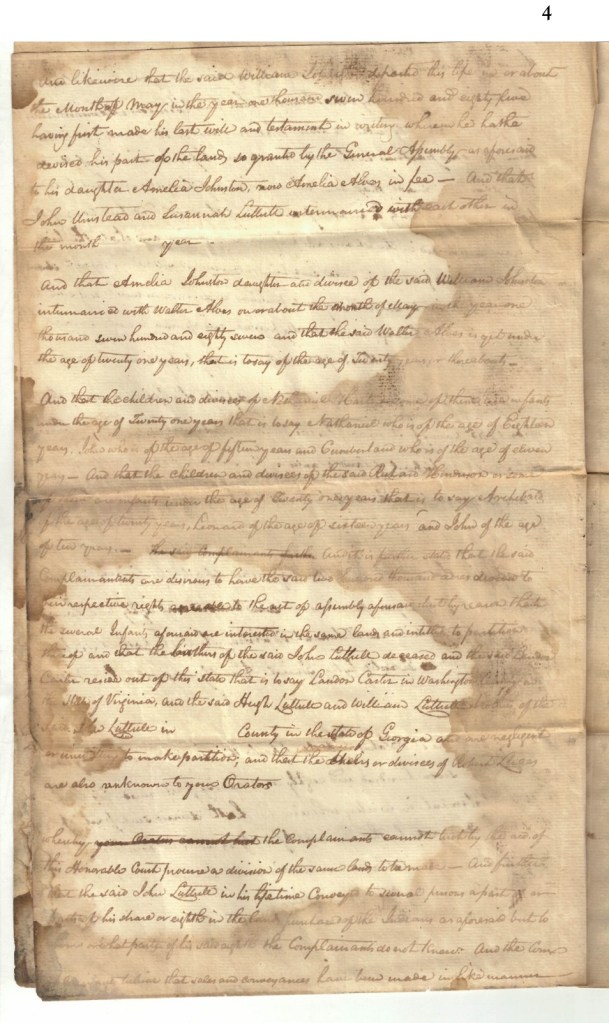 4
And likewise that the said William Johnston departed this life in or about
the Month of May in the year one thousand seven hundred and eighty five
having first made his last will and testament in writing wherein he hath
devised his part of the lands so granted by the General Assembly as aforesaid
to his daughter Amelia Johnston, now Amelia Alves in fee — And that
John Umstead and Susannah Luttrell intermarried with each other in
the month year
And that Amelia Johnston daughter and devisee of the said William Johnston
intermarried with Walter Alves on or about the month of May in the year one
thousand seven hundred and eighty seven and that the said Walter Alves is yet under
the age of twenty one years, that is to say of the age of Twenty years or thereabouts —
And that the children and devisees of Nathaniel Hart some of them are infants
under the age of Twenty one years that is to say Nathaniel who is of the age of Eighteen
years, John who is of the age of fifteen years and Cumberland who is of the age of eleven
years — And that the children and devisees of the said Richard Henderson or some
of them are infants under the age of twenty one years that is to say Archibald
of the age of twenty years, Leonard of the age of sixteen years and John of the age
of ten years — the said Complainants further And it is further stated that the said
Complainants are desirous to have the said two hundred thousand acres divided to
their respective rights to the act of assembly aforesaid but by reason that
the several Infants aforesaid are interested in the same lands and intitled to partition
thereof and that the brothers of the said John Luttrell deceased and the said Landon
Carter reside out of this State that is to say Landon Carter in Washington County in
the State of Virginia, and the said Hugh Luttrell and William Luttrell of the
said John Luttrell in County in the state of Georgia and are
to make partition, and that the heirs or devisees of Robert Lucas
are also unknown to your Orators
your Orators cannot but the Complainants cannot but by the aid of
this Honorable Court procure a division of the same lands to be made — And further
that the said John Luttrell in his lifetime Conveyed to several persons a part or
parts of his share or eighth in the lands purchased of the Indians as aforesaid but to
whom or what parts of his said the Complainants do not know And the Com-
that sales and conveyances have been made in like manner